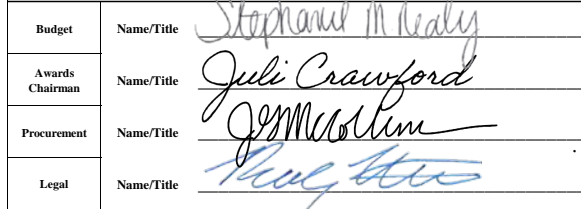 Budget Name/Title Stephanie M Nealy
Awards Chairman Name/Title Juli Crawford
Procurement Name/Title
Legal Name/Title